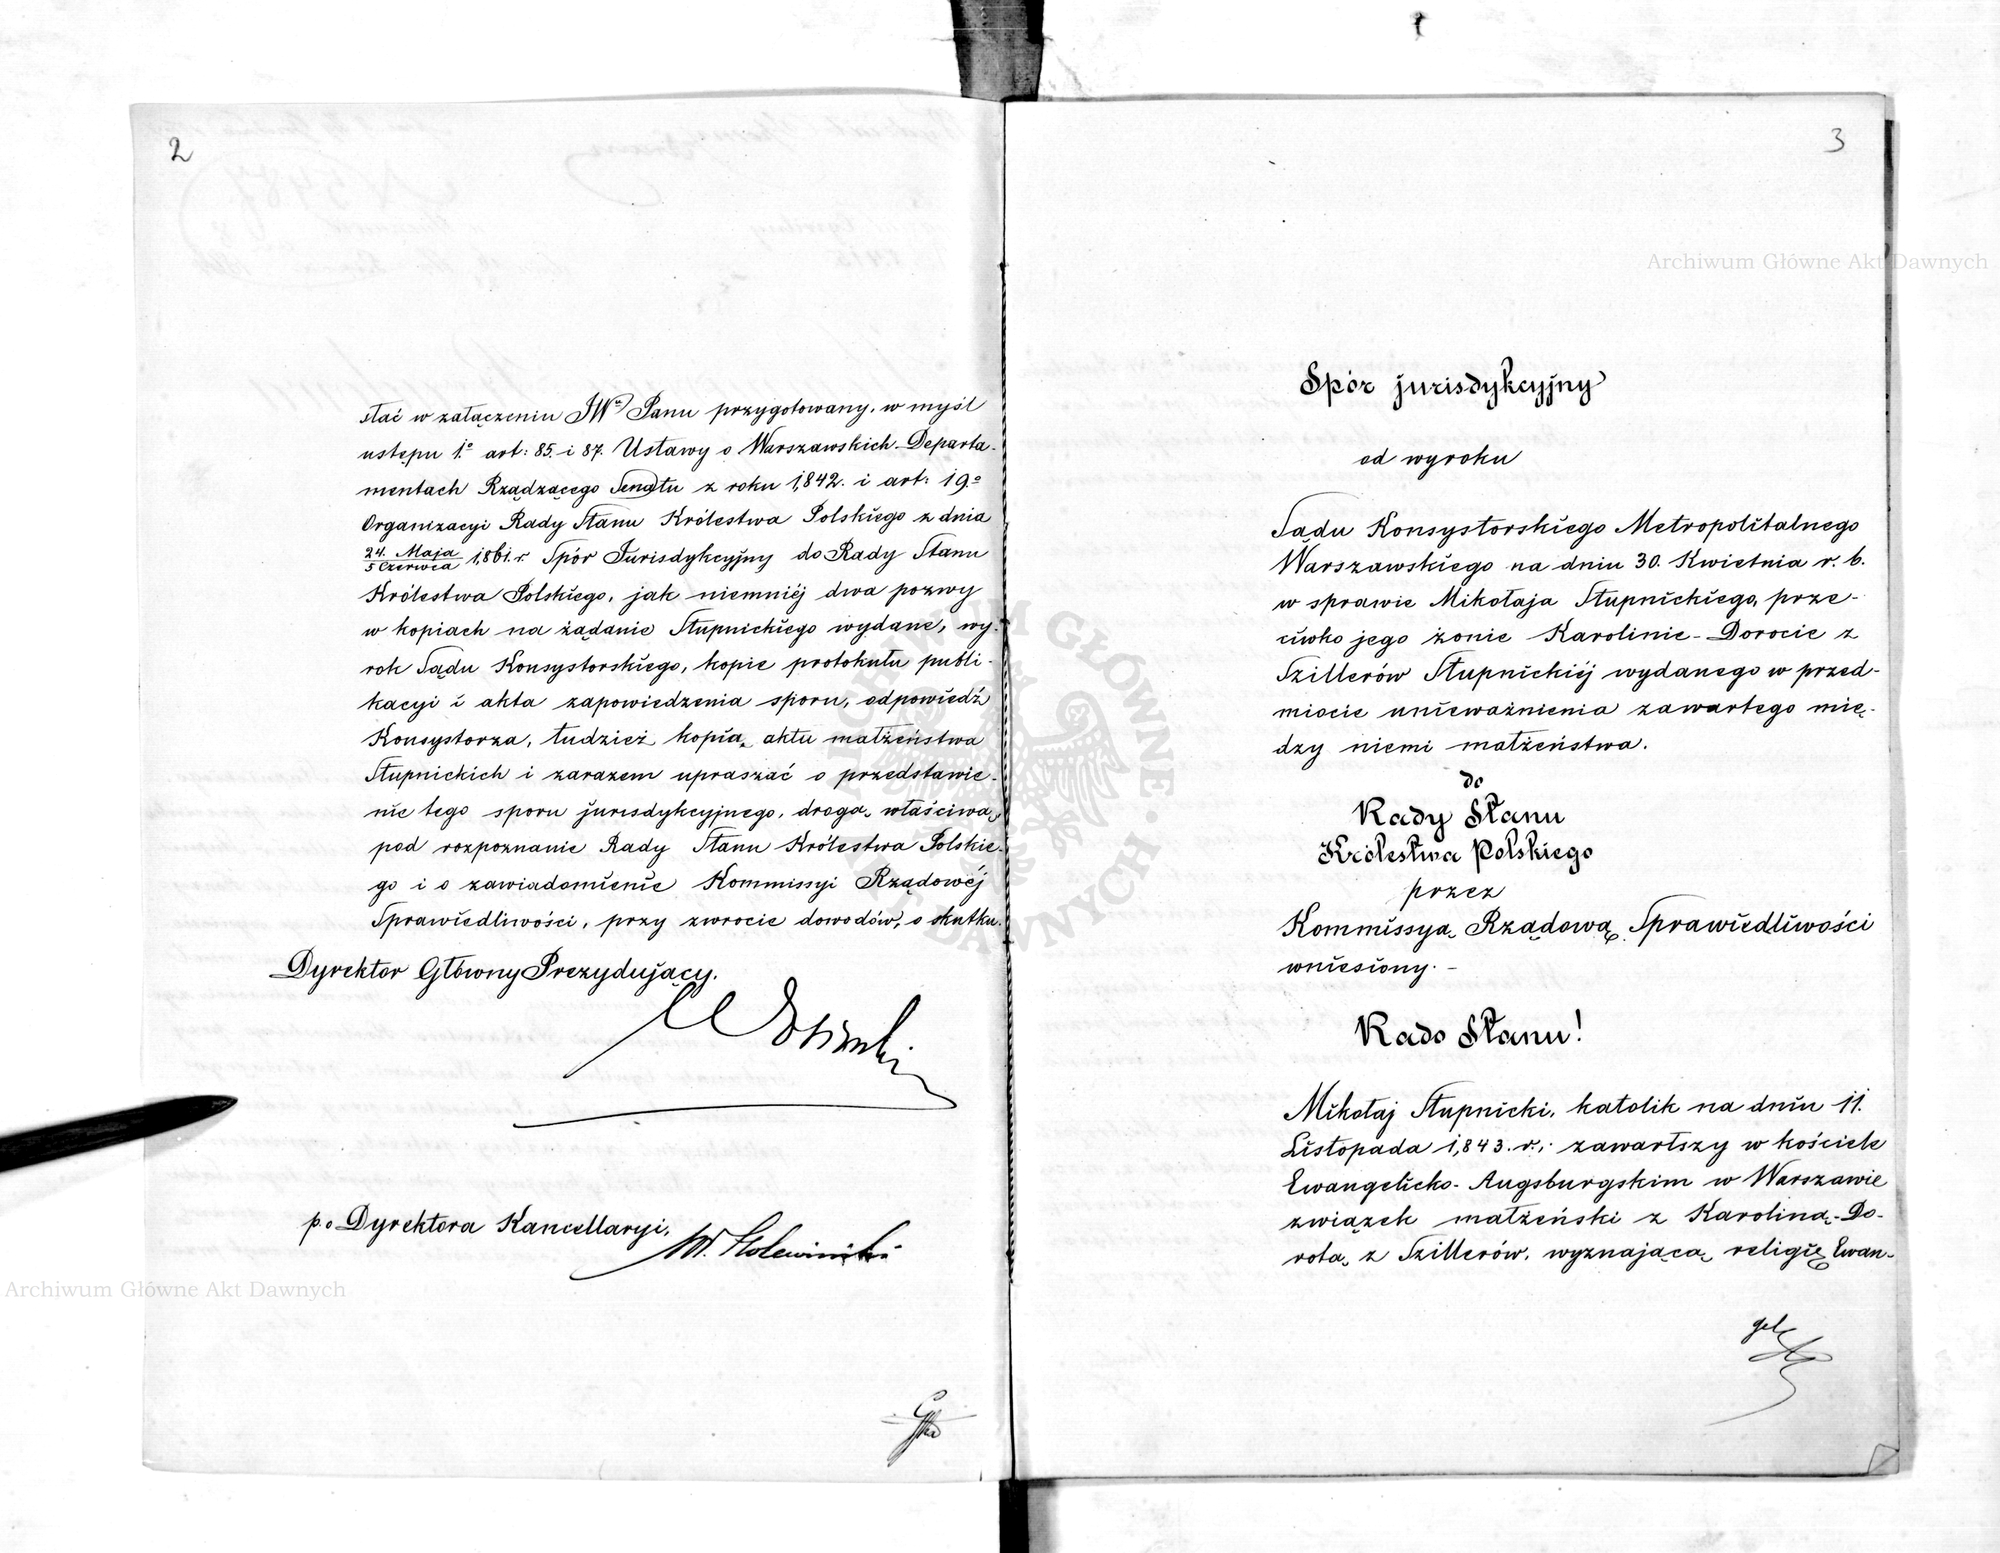 2
słać w załączeniu JWu Panu przygotowany, w myśl
ustępu 1.o art: 85. i 87. Ustawy o Warszawskich Departa-
mentach Rządzącego Senatu z roku 1,842. i art: 19.o
Organizacyi Rady Stanu Królestwa Polskiego z dnia
24. Maja / 5 Czerwca 1,861. r. Spór Jurisdykcyjny do Rady Stanu
Królestwa Polskiego, jak niemniéj dwa pozwy
w kopiach na żądanie Stupnickiego wydane, wy-
rok Sądu Konsystorskiego, kopie protokułu publi-
kacyi i akta zapowiedzenia sporu, odpowiedź
Konsystorza, tudzież kopią aktu małżeństwa
Stupnickich i zarazem upraszać o przedstawie-
nie tego sporu jurisdykcyjnego, drogą właściwą
pod rozpoznanie Rady Stanu Królestwa Polskie-
go i o zawiadomienie Kommissyi Rządowéj
Sprawiedliwości, przy zwrocie dowodów, o skutku.
Dyrektor Główny Prezydujący.
p.o Dyrektora Kancellaryi,
3
Spór jurisdykcyjny
od wyroku
Sądu Konsystorskiego Metropolitalnego
Warszawskiego na dniu 30. Kwietnia r. b.
w sprawie Mikołaja Stupnickiego, prze-
ciwko jego żonie Karolinie-Dorocie z
Szillerów Stupnickiéj wydanego w przed-
miocie unieważnienia zawartego mię-
dzy niemi małżeństwa.
do
Rady Stanu
Królestwa Polskiego
przez
Kommissyą Rządową Sprawiedliwości
wniesiony. -
Rado Stanu!
Mikołaj Stupnicki, katolik na dniu 11.
Listopada 1,843. r., zawarłszy w kościele
Ewangelicko-Augsburgskim w Warszawie
związek małżeński z Karoliną-Do-
rotą z Szillerów, wyznającą religię Ewan-
gel
Archiwum Główne Akt Dawnych
Archiwum Główne Akt Dawnych
ARCHIWUM GŁÓWNE AKT DAWNYCH